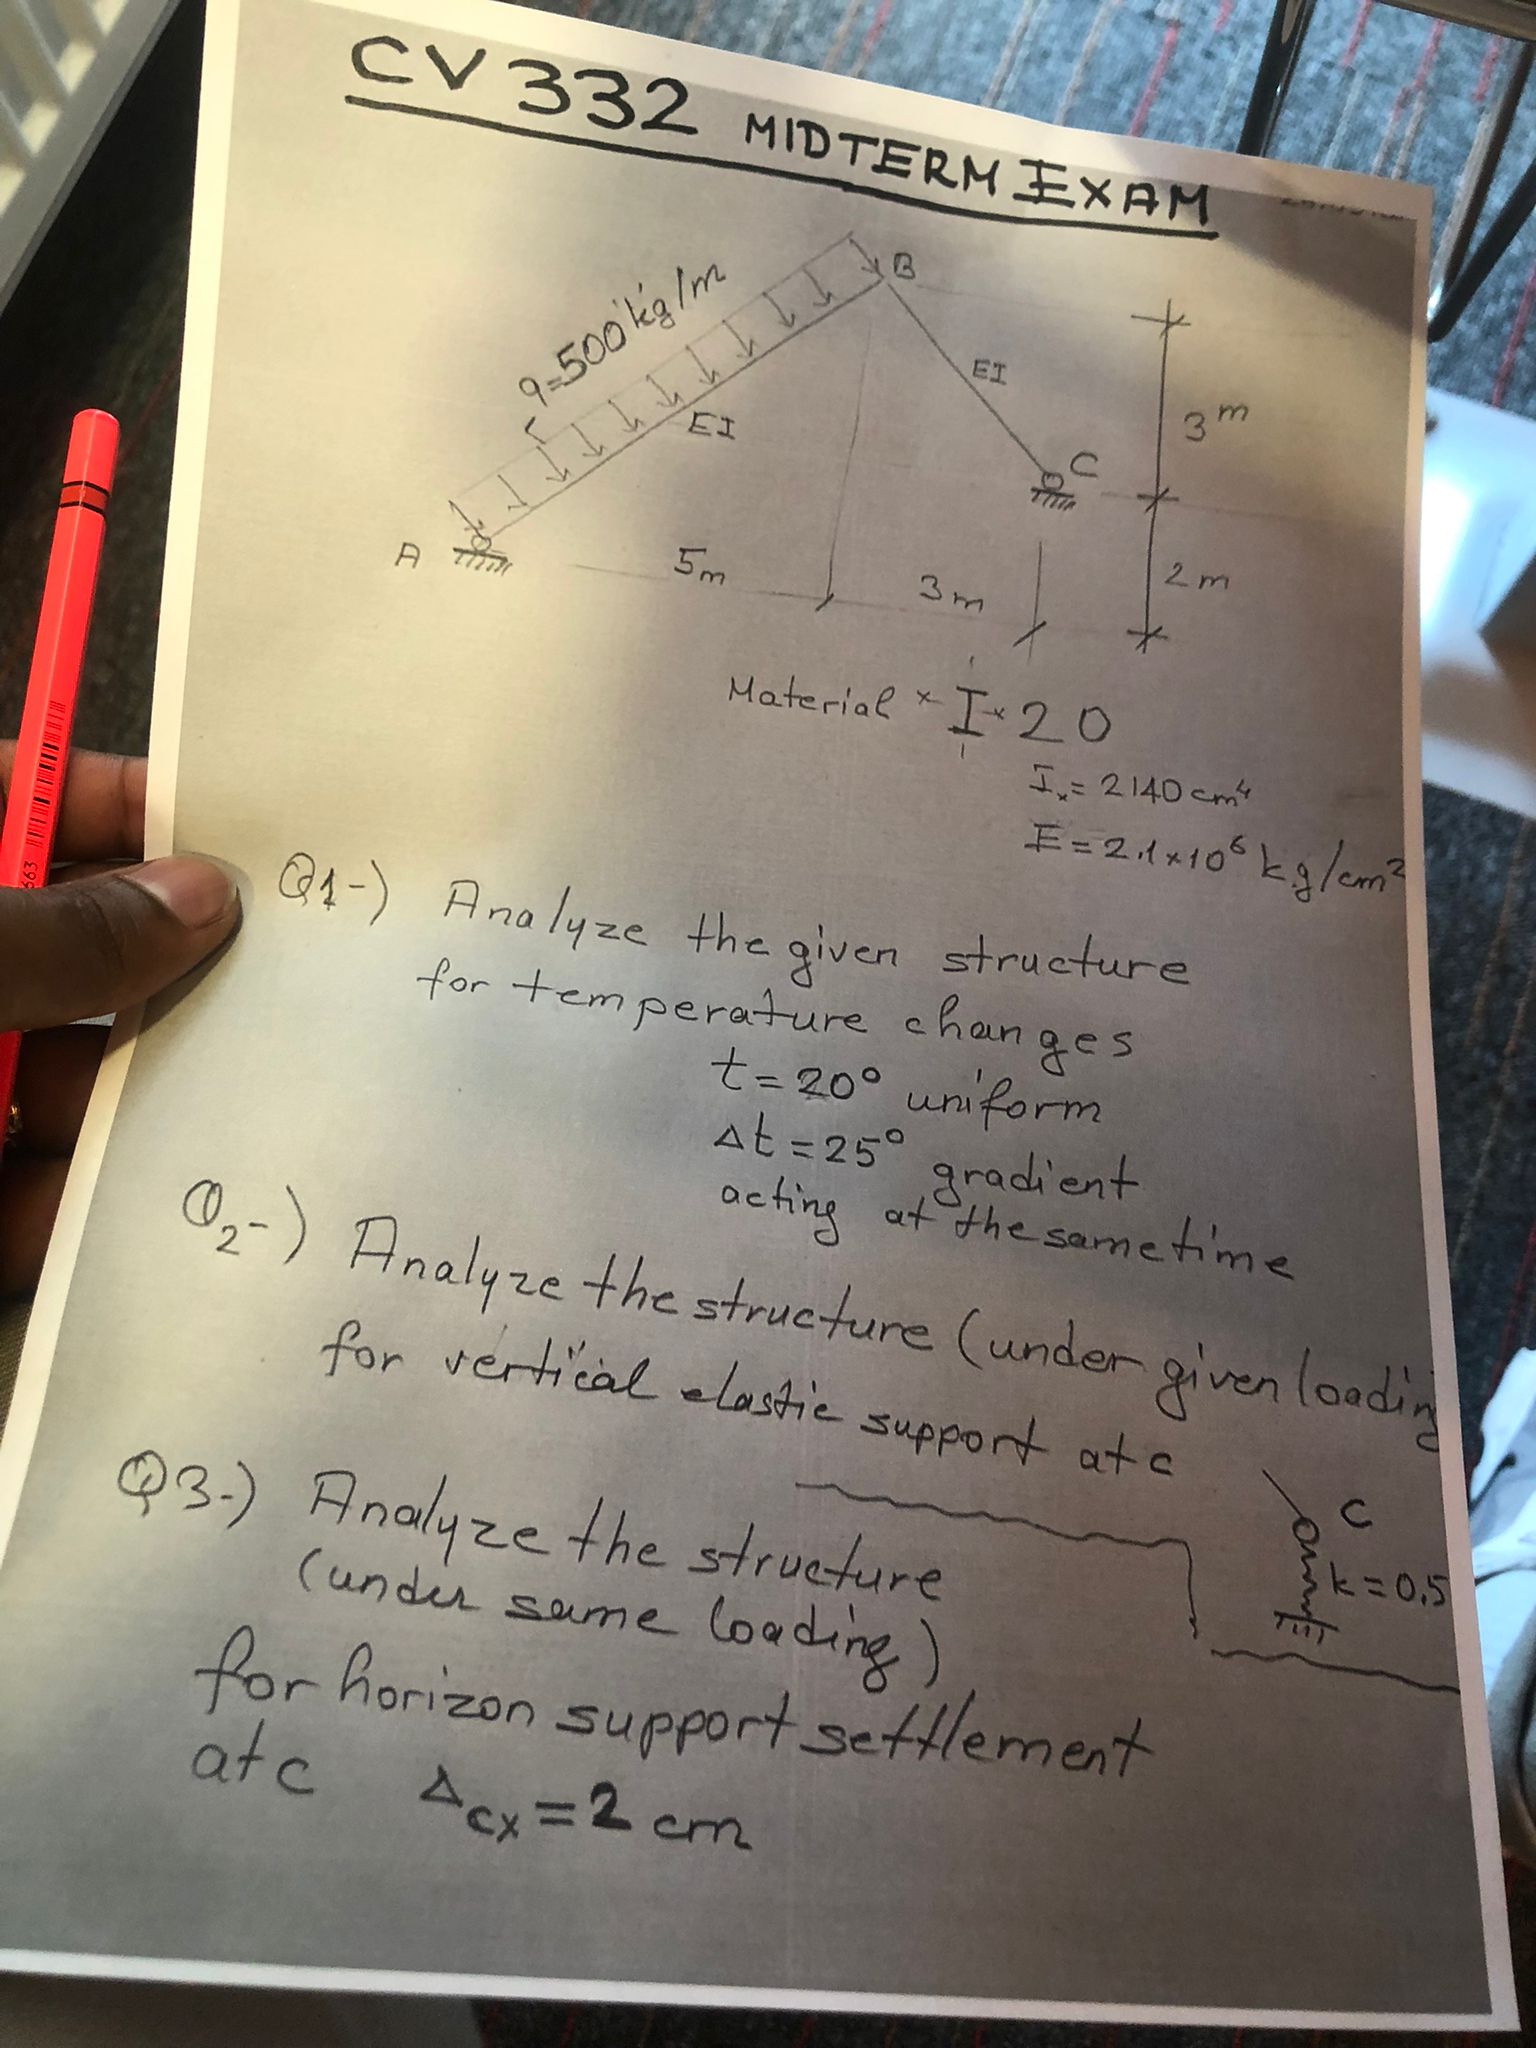 CV 332 MIDTERM EXAM
q=500 kg/m
B
EI
EI
3m
C
A
5m
3m
2m
Material I 20
Ix = 2140 cm⁴
E = 2.1×10⁶ kg/cm²
Q1-) Analyze the given structure
for temperature changes
t = 20° uniform
Δt = 25° gradient
acting at the same time
Q2-) Analyze the structure (under given loading
for vertical elastic support at c
C
k = 0.5
Q3-) Analyze the structure
(under same loading)
for horizon support settlement
at c Δcx = 2 cm
663